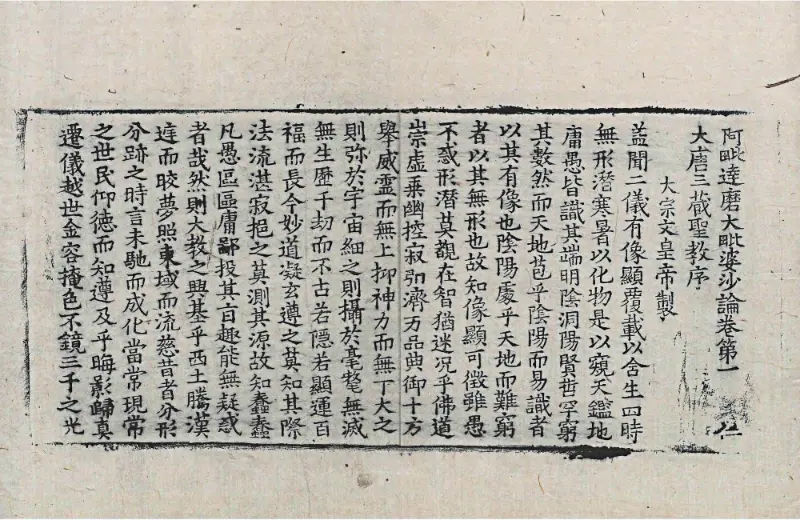 阿毗達磨大毗婆沙論卷第一
大唐三藏聖教序
大宗文皇帝製
盖聞二儀有像顯覆載以含生四時
無形潛寒暑以化物是以窺天鑑地
庸愚皆識其端明陰洞陽賢哲罕窮
其數然而天地苞乎陰陽而易識者
以其有像也陰陽處乎天地而難窮
者以其無形也故知像顯可徵雖愚
不惑形潛莫覩在智猶迷况乎佛道
崇虛乗幽控寂弘濟万品典御十方
舉威靈而無上抑神力而無下大之
則弥於宇宙細之則攝於毫氂無滅
無生歷千劫而不古若隱若顯運百
福而長今妙道凝玄遵之莫知其際
法流湛寂挹之莫測其源故知蠢蠢
凡愚區區庸鄙投其旨趣能無疑惑
者哉然則大教之興基乎西土騰漢
庭而晈夢照東域而流慈昔者分形
分跡之時言未馳而成化當常現常
之世民仰德而知遵及乎晦影歸真
遷儀越世金容掩色不鏡三千之光